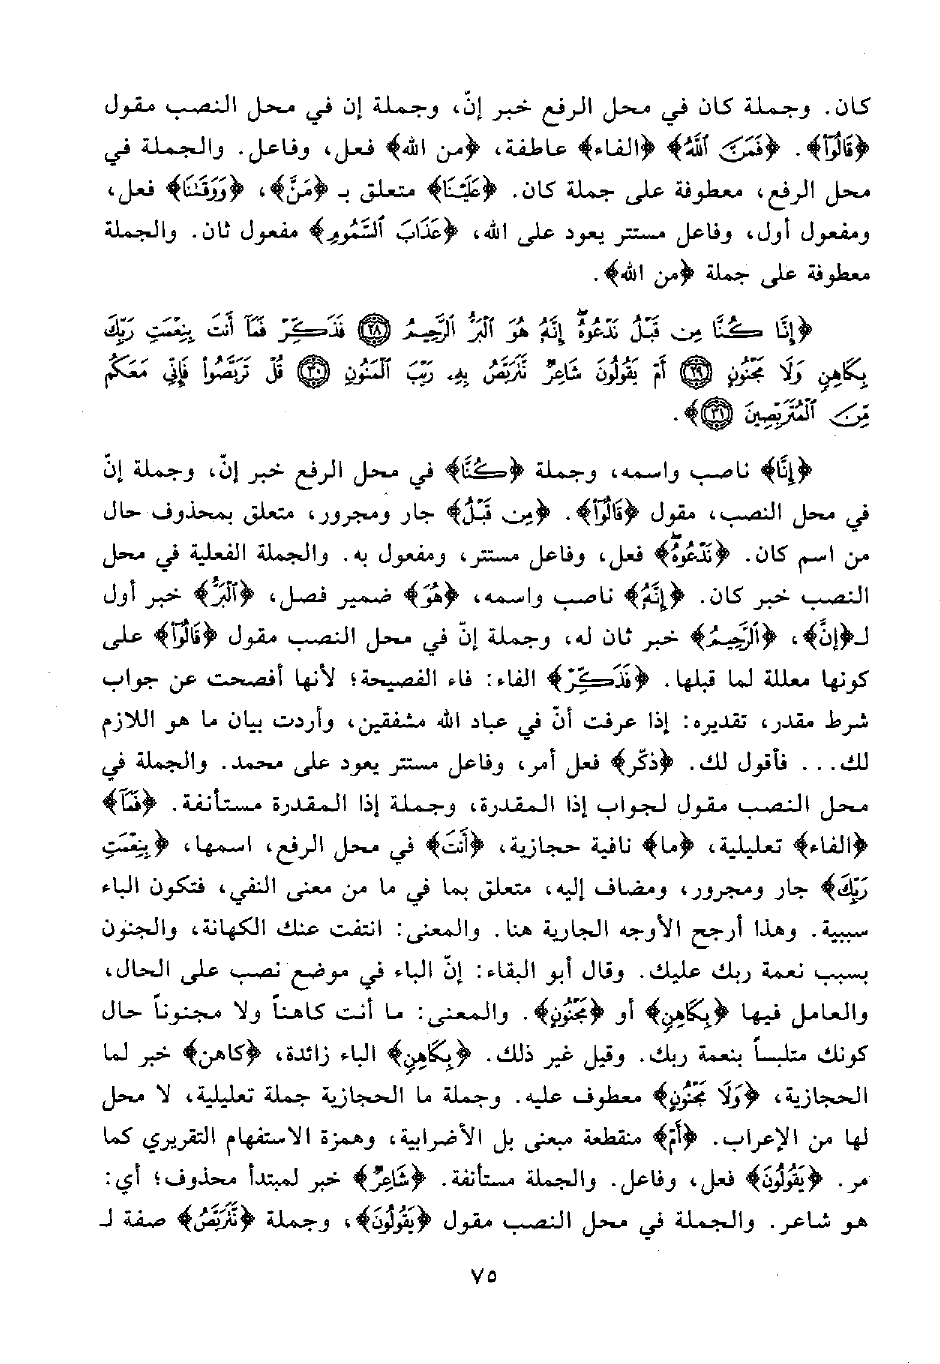 كان. وجملة كان في محل الرفع خبر إنّ، وجملة إن في محل النصب مقول
﴿قَالُوٓا۟﴾. ﴿فَمَنَّ ٱللَّهُ﴾ ﴿الفاء﴾ عاطفة، ﴿من الله﴾ فعل، وفاعل. والجملة في
محل الرفع، معطوفة على جملة كان. ﴿عَلَيْنَا﴾ متعلق بـ ﴿مَنَّ﴾، ﴿وَوَقَىٰنَا﴾ فعل،
ومفعول أول، وفاعل مستتر يعود على الله، ﴿عَذَابَ ٱلسَّمُومِ﴾ مفعول ثان. والجملة
معطوفة على جملة ﴿من الله﴾.
﴿إِنَّا كُنَّا مِن قَبْلُ نَدْعُوهُ إِنَّهُۥ هُوَ ٱلْبَرُّ ٱلرَّحِيمُ ٢٨ فَذَكِّرْ فَمَآ أَنتَ بِنِعْمَتِ رَبِّكَ
بِكَاهِنٍ وَلَا مَجْنُونٍ ٢٩ أَمْ يَقُولُونَ شَاعِرٌ نَّتَرَبَّصُ بِهِۦ رَيْبَ ٱلْمَنُونِ ٣٠ قُلْ تَرَبَّصُوا۟ فَإِنِّى مَعَكُم
مِّنَ ٱلْمُتَرَبِّصِينَ ٣١﴾.
﴿إِنَّا﴾ ناصب واسمه، وجملة ﴿كُنَّا﴾ في محل الرفع خبر إنّ، وجملة إنّ
في محل النصب، مقول ﴿قَالُوٓا۟﴾. ﴿مِن قَبْلُ﴾ جار ومجرور، متعلق بمحذوف حال
من اسم كان. ﴿نَدْعُوهُ﴾ فعل، وفاعل مستتر، ومفعول به. والجملة الفعلية في محل
النصب خبر كان. ﴿إِنَّهُۥ﴾ ناصب واسمه، ﴿هُوَ﴾ ضمير فصل، ﴿ٱلْبَرُّ﴾ خبر أول
لـ﴿إنَّ﴾، ﴿ٱلرَّحِيمُ﴾ خبر ثان له، وجملة إنّ في محل النصب مقول ﴿قَالُوٓا۟﴾ على
كونها معللة لما قبلها. ﴿فَذَكِّرْ﴾ الفاء: فاء الفصيحة؛ لأنها أفصحت عن جواب
شرط مقدر، تقديره: إذا عرفت أنّ في عباد الله مشفقين، وأردت بيان ما هو اللازم
لك... فأقول لك. ﴿ذكّر﴾ فعل أمر، وفاعل مستتر يعود على محمد. والجملة في
محل النصب مقول لجواب إذا المقدرة، وجملة إذا المقدرة مستأنفة. ﴿فَمَآ﴾
﴿الفاء﴾ تعليلية، ﴿ما﴾ نافية حجازية، ﴿أَنتَ﴾ في محل الرفع، اسمها، ﴿بِنِعْمَتِ
رَبِّكَ﴾ جار ومجرور، ومضاف إليه، متعلق بما في ما من معنى النفي، فتكون الباء
سببية. وهذا أرجح الأوجه الجارية هنا. والمعنى: انتفت عنك الكهانة، والجنون
بسبب نعمة ربك عليك. وقال أبو البقاء: إنّ الباء في موضع نصب على الحال،
والعامل فيها ﴿بِكَاهِنٍ﴾ أو ﴿مَجْنُونٍ﴾. والمعنى: ما أنت كاهناً ولا مجنوناً حال
كونك متلبساً بنعمة ربك. وقيل غير ذلك. ﴿بِكَاهِنٍ﴾ الباء زائدة، ﴿كاهن﴾ خبر لما
الحجازية، ﴿وَلَا مَجْنُونٍ﴾ معطوف عليه. وجملة ما الحجازية جملة تعليلية، لا محل
لها من الإعراب. ﴿أَمْ﴾ منقطعة مبعنى بل الأضرابية، وهمزة الاستفهام التقريري كما
مر. ﴿يَقُولُونَ﴾ فعل، وفاعل. والجملة مستأنفة. ﴿شَاعِرٌ﴾ خبر لمبتدأ محذوف؛ أي:
هو شاعر. والجملة في محل النصب مقول ﴿يَقُولُونَ﴾، وجملة ﴿نَّتَرَبَّصُ﴾ صفة لـ
٧٥